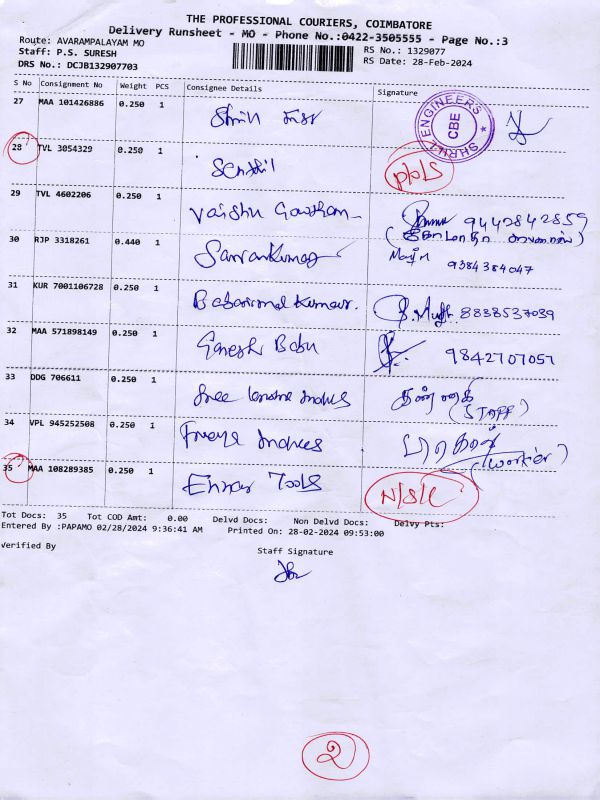 THE PROFESSIONAL COURIERS, COIMBATORE
Delivery Runsheet - MO - Phone No.:0422-3505555 - Page No.:3
Route: AVARAMPALAYAM MO
Staff: P.S. SURESH
DRS No.: DCJB132907703
RS No.: 1329077
RS Date: 28-Feb-2024
S No Consignment No Weight PCS Consignee Details Signature
27 MAA 101426886 0.250 1
SHRILL ENGINEERS CBE
28 TVL 3054329 0.250 1 Senthil
29 TVL 4602206 0.250 1 Vaishu Gowtham 9442842859
30 RJP 3318261 0.440 1 Saravankumar 9384384047
31 KUR 7001106728 0.250 1 Kumar. 8838537039
32 MAA 571898149 0.250 1 Ganesh Babu 9842707057
33 DDG 706611 0.250 1 (STAFF)
34 VPL 945252508 0.250 1 (Worker)
35 MAA 108289385 0.250 1 Tools N/S/L
Tot Docs: 35 Tot COD Amt: 0.00 Delvd Docs: Non Delvd Docs: Delvy Pts:
Entered By :PAPAMO 02/28/2024 9:36:41 AM Printed On: 28-02-2024 09:53:00
Verified By Staff Signature
2